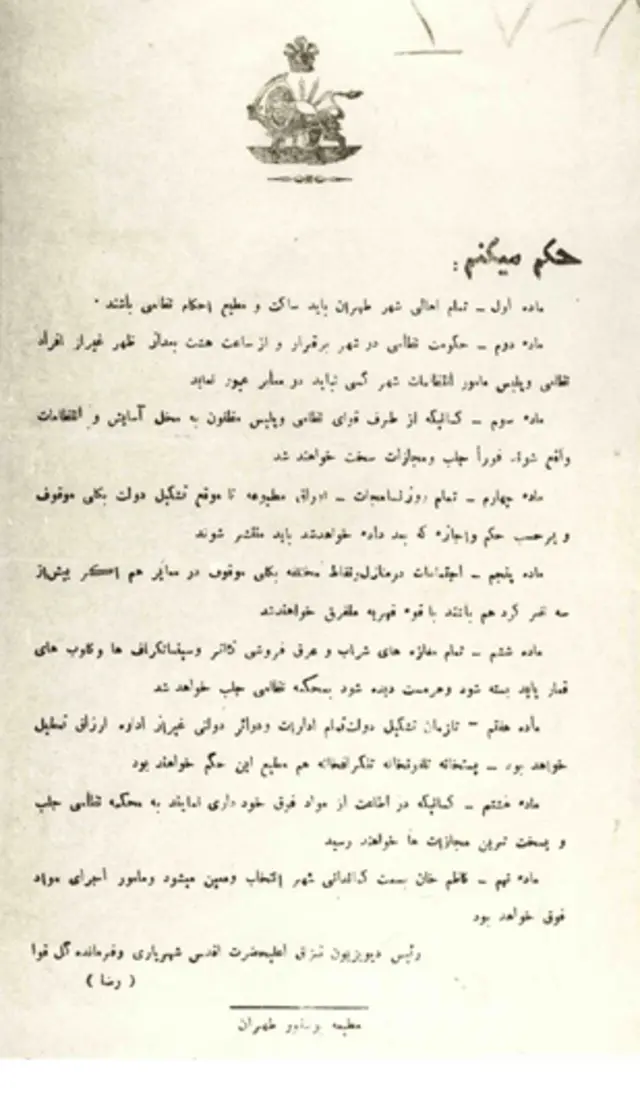 حکم میکنم :
ماده اول – تمام اهالی شهر طهران باید ساکت و مطیع احکام نظامی باشند .
ماده دوم – حکومت نظامی در شهر برقرار و از ساعت هشت بعد از ظهر غیر از افراد
نظامی و پلیس مامور انتظامات شهر کسی نباید در معابر عبور نماید
ماده سوم – کسانیکه از طرف قوای نظامی و پلیس مظنون به مخل آسایش و انتظامات
واقع شوند فوراً جلب و مجازات سخت خواهند شد
ماده چهارم – تمام روزنامجات – اوراق مطبوعه تا موقع تشکیل دولت بکلی موقوف
و برحسب حکم و اجازه که بعد داده خواهد شد باید منتشر شوند
ماده پنجم – اجتماعات در منازل و نقاط مختلفه بکلی موقوف در معابر هم اگر بیش از
سه نفر گرد هم باشند با قوه قهریه متفرق خواهند شد
ماده ششم – تمام مغازه های شراب و عرق فروشی تئاتر و سینماتگراف ها و کلوب های
قمار باید بسته شود و هر مست دیده شود بمحکمه نظامی جلب خواهد شد
ماده هفتم – تا زمان تشکیل دولت تمام ادارات و دوائر دولتی غیر از اداره ارزاق تعطیل
خواهد بود – پستخانه تلفونخانه تلگرافخانه هم مطیع این حکم خواهند بود
ماده هشتم – کسانیکه در اطاعت از مواد فوق خود داری نمایند به محکمه نظامی جلب
و بسخت ترین مجازات ها خواهند رسید
ماده نهم – کاظم خان بسمت کماندانی شهر انتخاب و معین میشود و مامور اجرای مواد
فوق خواهد بود
رئیس دیویزیون قزاق اعلیحضرت اقدس شهریاری و فرمانده کل قوا
( رضا )
مطبعه طهران